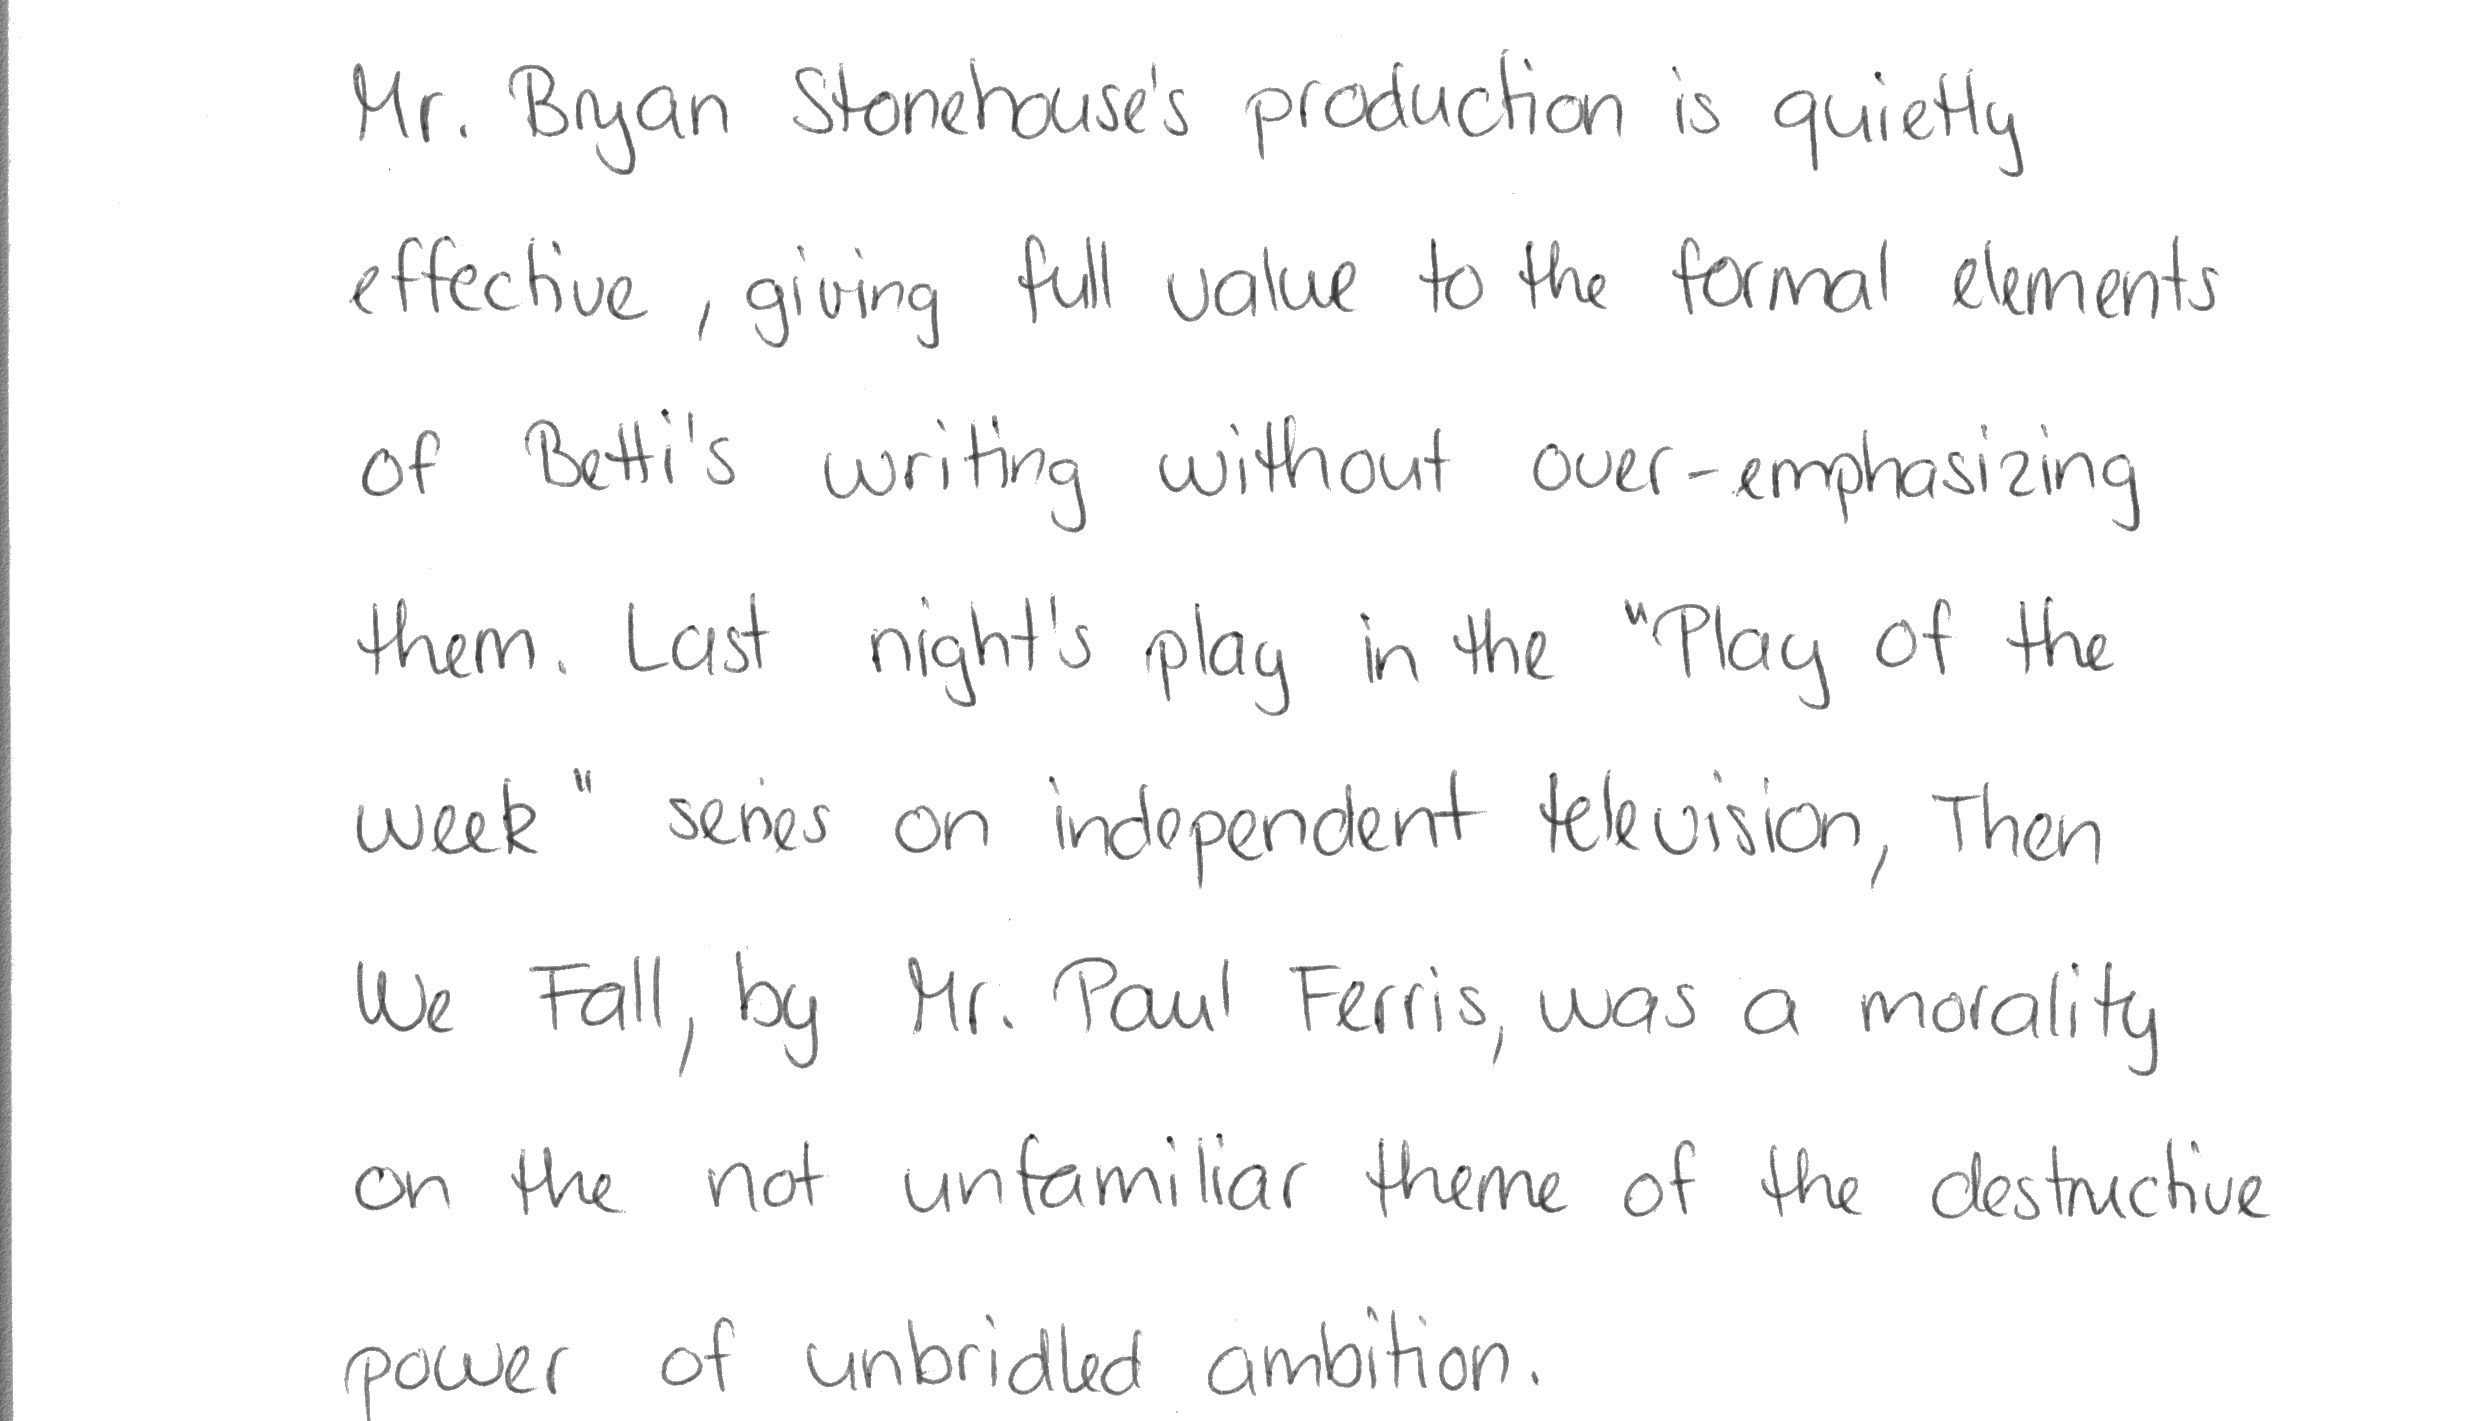 Mr. Bryan Stonehouse's production is quietly
effective, giving full value to the formal elements
of Betti's writing without over-emphasizing
them. Last night's play in the "Play of the
Week" series on independent television, Then
We Fall, by Mr. Paul Ferris, was a morality
on the not unfamiliar theme of the destructive
power of unbridled ambition.